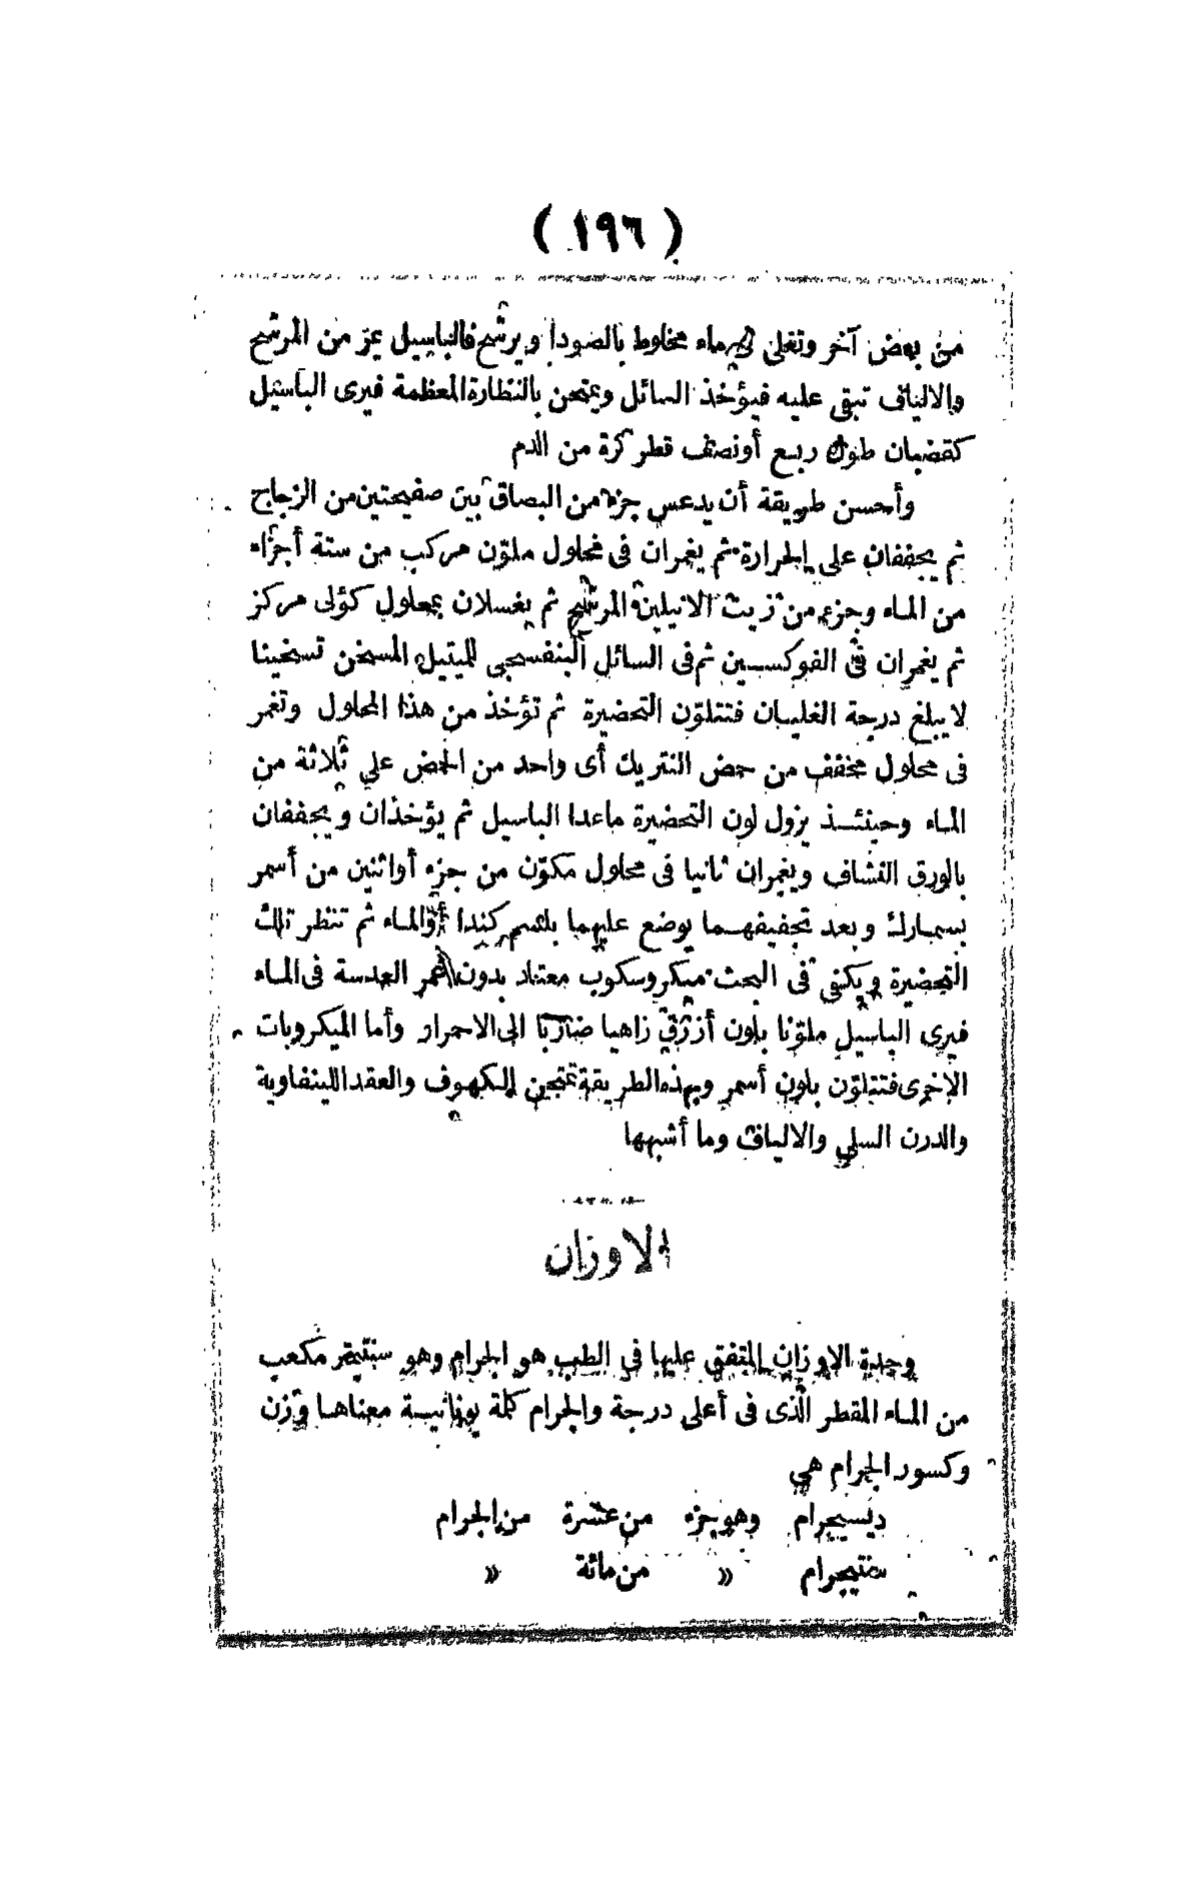 ( ١٩٦ )
من بعض آخر وتغلى في ماء مخلوط بالصودا ويرشح فالباسيل يمر من المرشح
والالياف تبقى عليه فيؤخذ السائل ويمتحن بالنظارة المعظمة فيرى الباسيل
كقضبان طول ربع أونصف قطر كرة من الدم
وأحسن طريقة أن يدعس جزء من البصاق بين صفيحتين من الزجاج
ثم يجففان على الحرارة ثم يغمران فى محلول ملوّن مركب من ستة أجزاء
من الماء وجزء من زيت الانيلين المرشح ثم يغسلان بمحلول كؤلى مركز
ثم يغمران فى الفوكسين ثم فى السائل البنفسجى للميتيل المسخن تسخينا
لايبلغ درجة الغليان فتتلوّن التحضيرة ثم تؤخذ من هذا المحلول وتغمر
فى محلول مخفف من حمض النتريك أى واحد من الحمض على ثلاثة من
الماء وحينئذ يزول لون التحضيرة ماعدا الباسيل ثم يؤخذان ويجففان
بالورق النشاف ويغمران ثانيا فى محلول مكوّن من جزء أواثنين من أسمر
بسمارك وبعد تجفيفهما يوضع عليهما بلسم كندا أوالماء ثم تنظر تلك
التحضيرة ويكفى فى البحث ميكروسكوب معتاد بدون غمر العدسة فى الماء
فيرى الباسيل ملوّنا بلون أزرق زاهيا ضاربا الى الاحمرار وأما الميكروبات
الاخرى فتتلوّن بلون أسمر وبهذه الطريقة تمتحن الكهوف والعقد اللينفاوية
والدرن السلى والالياف وما أشبهها
الاوزان
وحدة الاوزان المتفق عليها فى الطب هو الجرام وهو سنتيمتر مكعب
من الماء المقطر الذى فى أعلى درجة والجرام كلمة يونانيسة معناها وزن
وكسور الجرام هى
ديسيجرام وهوجزء من عشرة من الجرام
سنتيجرام » من مائة »